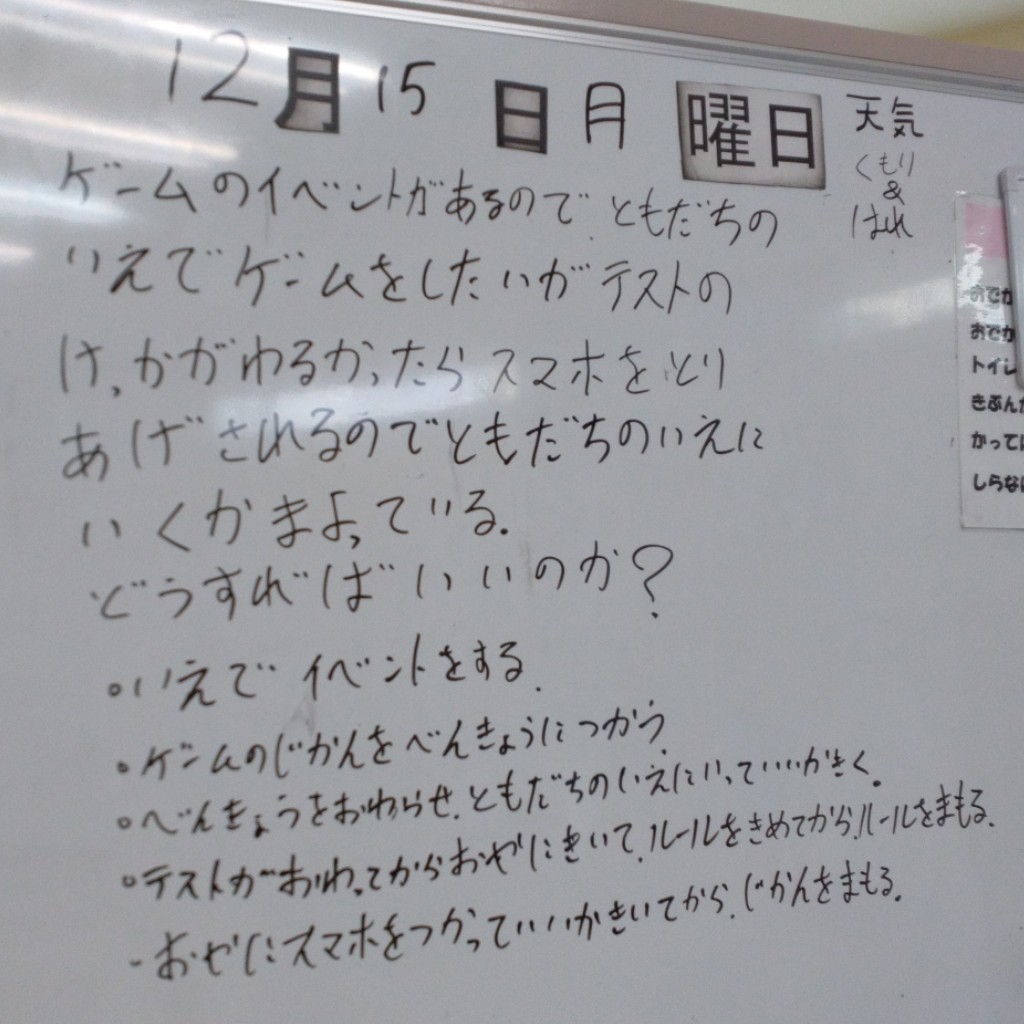 12月15日月曜日 天気
くもり
&
はれ
ゲームのイベントがあるので、ともだちの
いえでゲームをしたいがテストの
けっかがわるかったらスマホをとり
あげされるのでともだちのいえに
いくかまよっている.
どうすればいいのか?
・いえでイベントをする.
・ゲームのじかんをべんきょうにつかう.
・べんきょうをおわらせ、ともだちのいえにいっていいかきく。
・テストがおわってからおやにきいて、ルールをきめてから、ルールをまもる.
・おやにスマホをつかっていいかきいてから、じかんをまもる.
おでか
おでか
トイレ
きぶんた
かってに
しらな